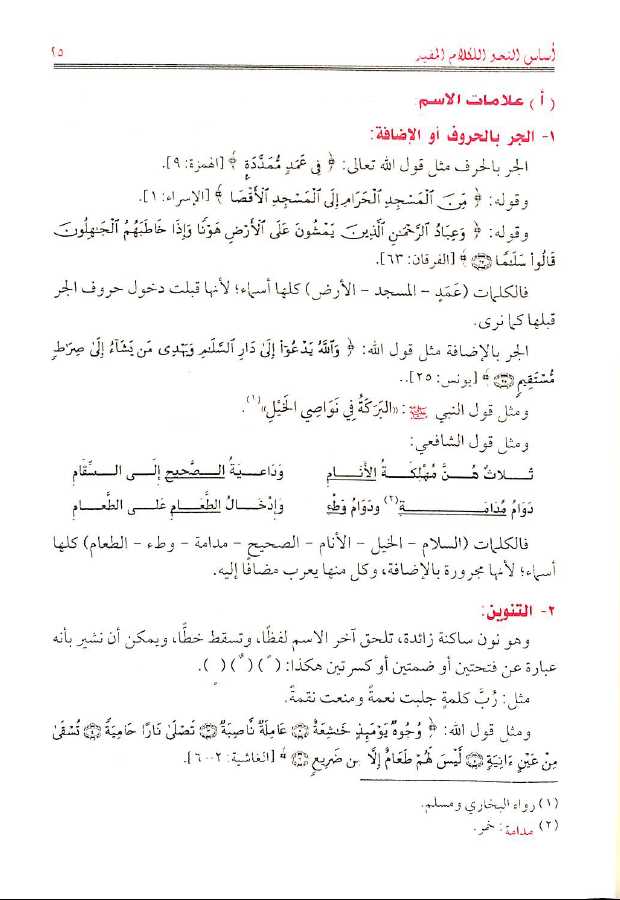 أساس النحو الكلام المفيد ٢٥
(أ) علامات الاسم
١- الجر بالحروف أو الإضافة:
الجر بالحرف مثل قول الله تعالى: ﴿ فِي عَمَدٍ مُّمَدَّدَةٍ ﴾ [الهمزة: ٩].
وقوله: ﴿ مِّنَ الْمَسْجِدِ الْحَرَامِ إِلَى الْمَسْجِدِ الْأَقْصَا ﴾ [الإسراء: ١].
وقوله: ﴿ وَعِبَادُ الرَّحْمَٰنِ الَّذِينَ يَمْشُونَ عَلَى الْأَرْضِ هَوْنًا وَإِذَا خَاطَبَهُمُ الْجَٰهِلُونَ
قَالُوا سَلَٰمًا ﴾ [الفرقان: ٦٣].
فالكلمات (عَمَدٍ - المسجد - الأرض) كلها أسماء؛ لأنها قبلت دخول حروف الجر
قبلها كما نرى.
الجر بالإضافة مثل قول الله: ﴿ وَاللَّهُ يَدْعُوا إِلَىٰ دَارِ السَّلَٰمِ وَيَهْدِي مَن يَشَاءُ إِلَىٰ صِرَٰطٍ
مُّسْتَقِيمٍ ﴾ [يونس: ٢٥]..
ومثل قول النبي ﷺ: «البَرَكَةُ فِي نَوَاصِي الخَيْلِ»(١).
ومثل قول الشافعي:
ثَلاثٌ هُنَّ مُهْلِكَةُ الأَنَامِ وَدَاعِيَةُ الصَّحِيحِ إِلَى السِّقَامِ
دَوَامُ مُدَامَةٍ(٢) ودَوَامُ وَطْءٍ وَإِدْخَالُ الطَّعَامِ عَلَى الطَّعَامِ
فالكلمات (السلام - الخيل - الأنام - الصحيح - مدامة - وطء - الطعام) كلها
أسماء؛ لأنها مجرورة بالإضافة، وكل منها يعرب مضافًا إليه.
٢- التنوين:
وهو نون ساكنة زائدة، تلحق آخر الاسم لفظًا، وتسقط خطًّا، ويمكن أن نشير بأنه
عبارة عن فتحتين أو ضمتين أو كسرتين هكذا: ( ً ) ( ٌ ) ( ٍ ).
مثل: رُبَّ كلمةٍ جلبت نعمةً ومنعت نقمةً.
ومثل قول الله: ﴿ وُجُوهٌ يَوْمَئِذٍ خَٰشِعَةٌ عَامِلَةٌ نَّاصِبَةٌ تَصْلَىٰ نَارًا حَامِيَةً تُسْقَىٰ
مِنْ عَيْنٍ ءَانِيَةٍ لَّيْسَ لَهُمْ طَعَامٌ إِلَّا مِن ضَرِيعٍ ﴾ [الغاشية: ٢-٦].
(١) رواه البخاري ومسلم.
(٢) مدامة: خمر.